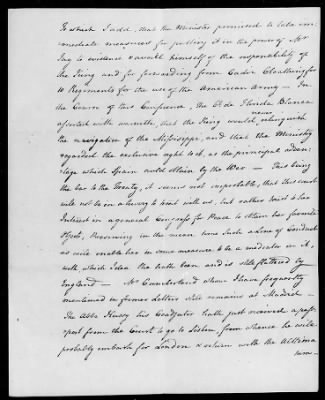 To which I add, that the Minister promised to take im-
mediate measures for putting it in the power of Mr
Jay to evidence & avail himself of the responsibility of
the King and for forwarding from Cadiz Cloathing for
10 Regiments for the use of the American Army — In
the Course of this Conference, the Ct. de Florida Blanca
asserted with warmth, that the King would never relinquish
the navigation of the Mississippi, and that the Ministry
regarded the exclusive right to it, as the principal advan-
tage which Spain would obtain by the War — This being
the bar to the Treaty, it seems not improbable, that this court
will not be in a hurry to treat with us, but rather trust to her
Interest in a general Congress for Peace to obtain her favorite
Object, observing in the mean time such a Line of Conduct
as will enable her in some measure to be a mediator in it,
with which Idea she hath been and is still flattered by
England — Mr Cumberland whom I have frequently
mentioned in former letters still remains at Madrid —
The Abbe Hussy his Coadjutor hath just received a pass-
port from the Court to go to Lisbon, from whence he will
probably embark for London & return with the Ultima
tum —